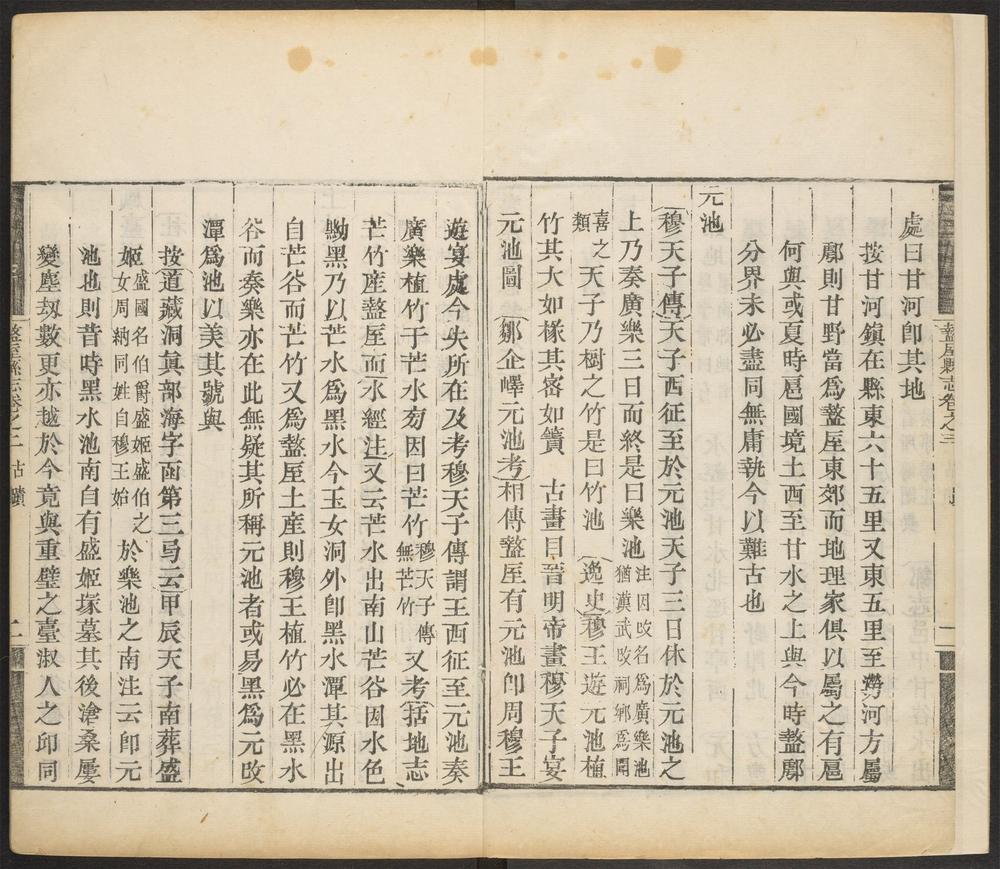 處曰甘河卽其地
按甘河鎮在縣東六十五里又東五里至澇河方屬
鄠則甘野當爲盩厔東郊而地理家俱以屬之有扈
何與或夏時扈國境土西至甘水之上與今時盩鄠
分界未必盡同無庸執今以難古也
元池
穆天子傳天子西征至於元池天子三日休於元池之
上乃奏廣樂三日而終是曰樂池注因攺名爲廣樂池猶漢武攺祠鄉爲聞
喜之類天子乃樹之竹是曰竹池 逸史穆王遊元池植
竹其大如椽其密如簀 古畫目晉明帝畫穆天子宴
元池圖 鄒企嶧元池考相傳盩厔有元池卽周穆王
遊宴處今失所在及考穆天子傳謂王西征至元池奏
廣樂植竹于芒水旁因曰芒竹穆天子傳無芒竹又考括地志
芒竹產盩厔而水經注又云芒水出南山芒谷因水色
黝黑乃以芒水爲黑水今玉女洞外卽黑水潭其源出
自芒谷而芒竹又爲盩厔土產則穆王植竹必在黑水
谷而奏樂亦在此無疑其所稱元池者或易黑爲元攺
潭爲池以美其號與
按道藏洞眞部海字函第三号云甲辰天子南葬盛
姬盛國名伯爵盛姬盛伯之女周納同姓自穆王始於樂池之南注云卽元
池也則昔時黑水池南自有盛姬塚墓其後滄桑屢
變塵刼數更亦越於今竟與重璧之臺淑人之邱同
盩厔縣志卷之三
一
盩厔縣志卷之二 古蹟
二